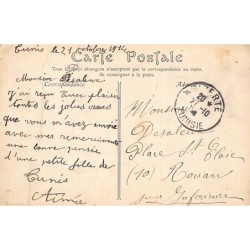 Tunis le 21 octobre 1914
Carte Postale
Tous les pays étrangers n'acceptent pas la correspondance au recto.
Se renseigner à la poste.
Correspondance
Monsieur Desaleux
j'ai reçu avec plaisir
toutes les jolies vues
que vous m'avez envoyé
avec mes remerciements
une bonne pensée
d'une petite fille de
Tunis
Aimée
20
-10
TUNISIE
Monsieur
Desaleux
Place St Eloi
(10) Rouen
Seine Inférieure